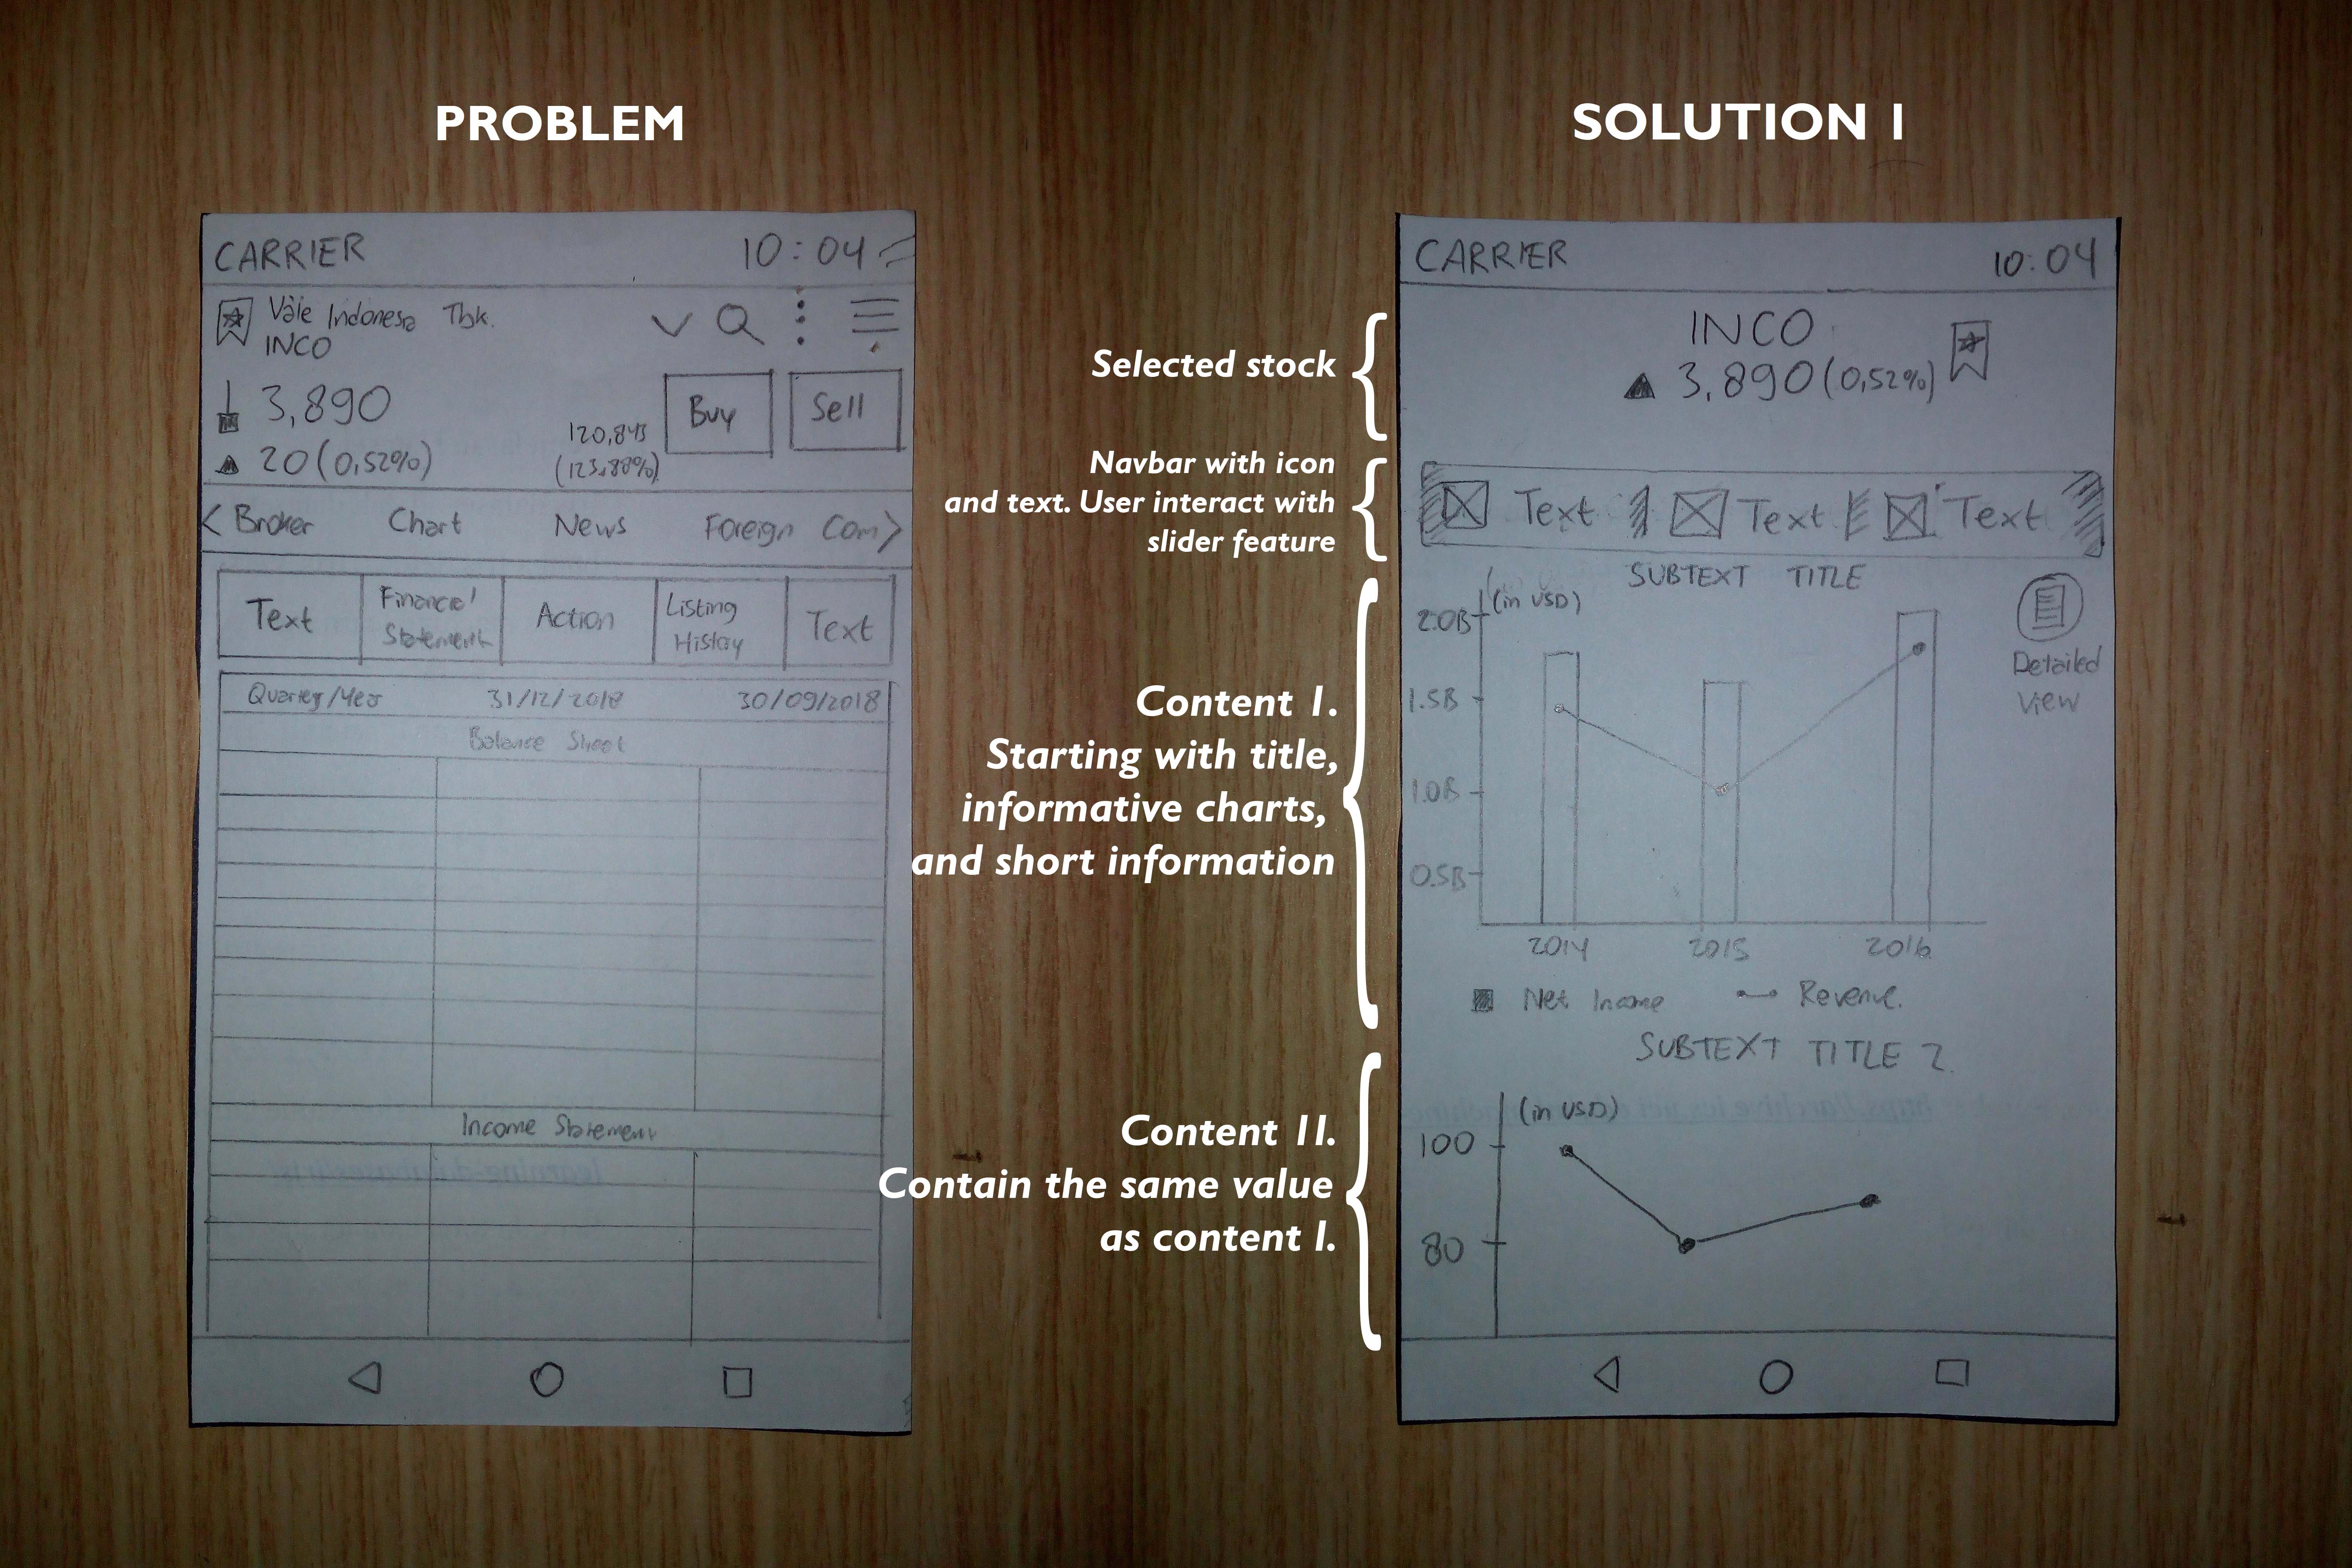 PROBLEM
CARRIER 10:04
Vale Indonesia Tbk.
INCO
3,890
Buy
Sell
20 (0,52%)
120,843
(123,88%)
< Broker Chart News Foreign Com >
Text
Financial
Statement
Action
Listing
History
Text
Quarter/Year 31/12/2018 30/09/2018
Balance Sheet
Income Statement
Selected stock
Navbar with icon
and text. User interact with
slider feature
Content I.
Starting with title,
informative charts,
and short information
Content II.
Contain the same value
as content I.
SOLUTION I
CARRIER 10:04
INCO
3,890 (0,52%)
Text Text Text
SUBTEXT TITLE
(in USD)
2.0B
1.5B
1.0B
0.5B
Detailed
View
2014 2015 2016
Net Income Revenue.
SUBTEXT TITLE 2.
(in USD)
100
80